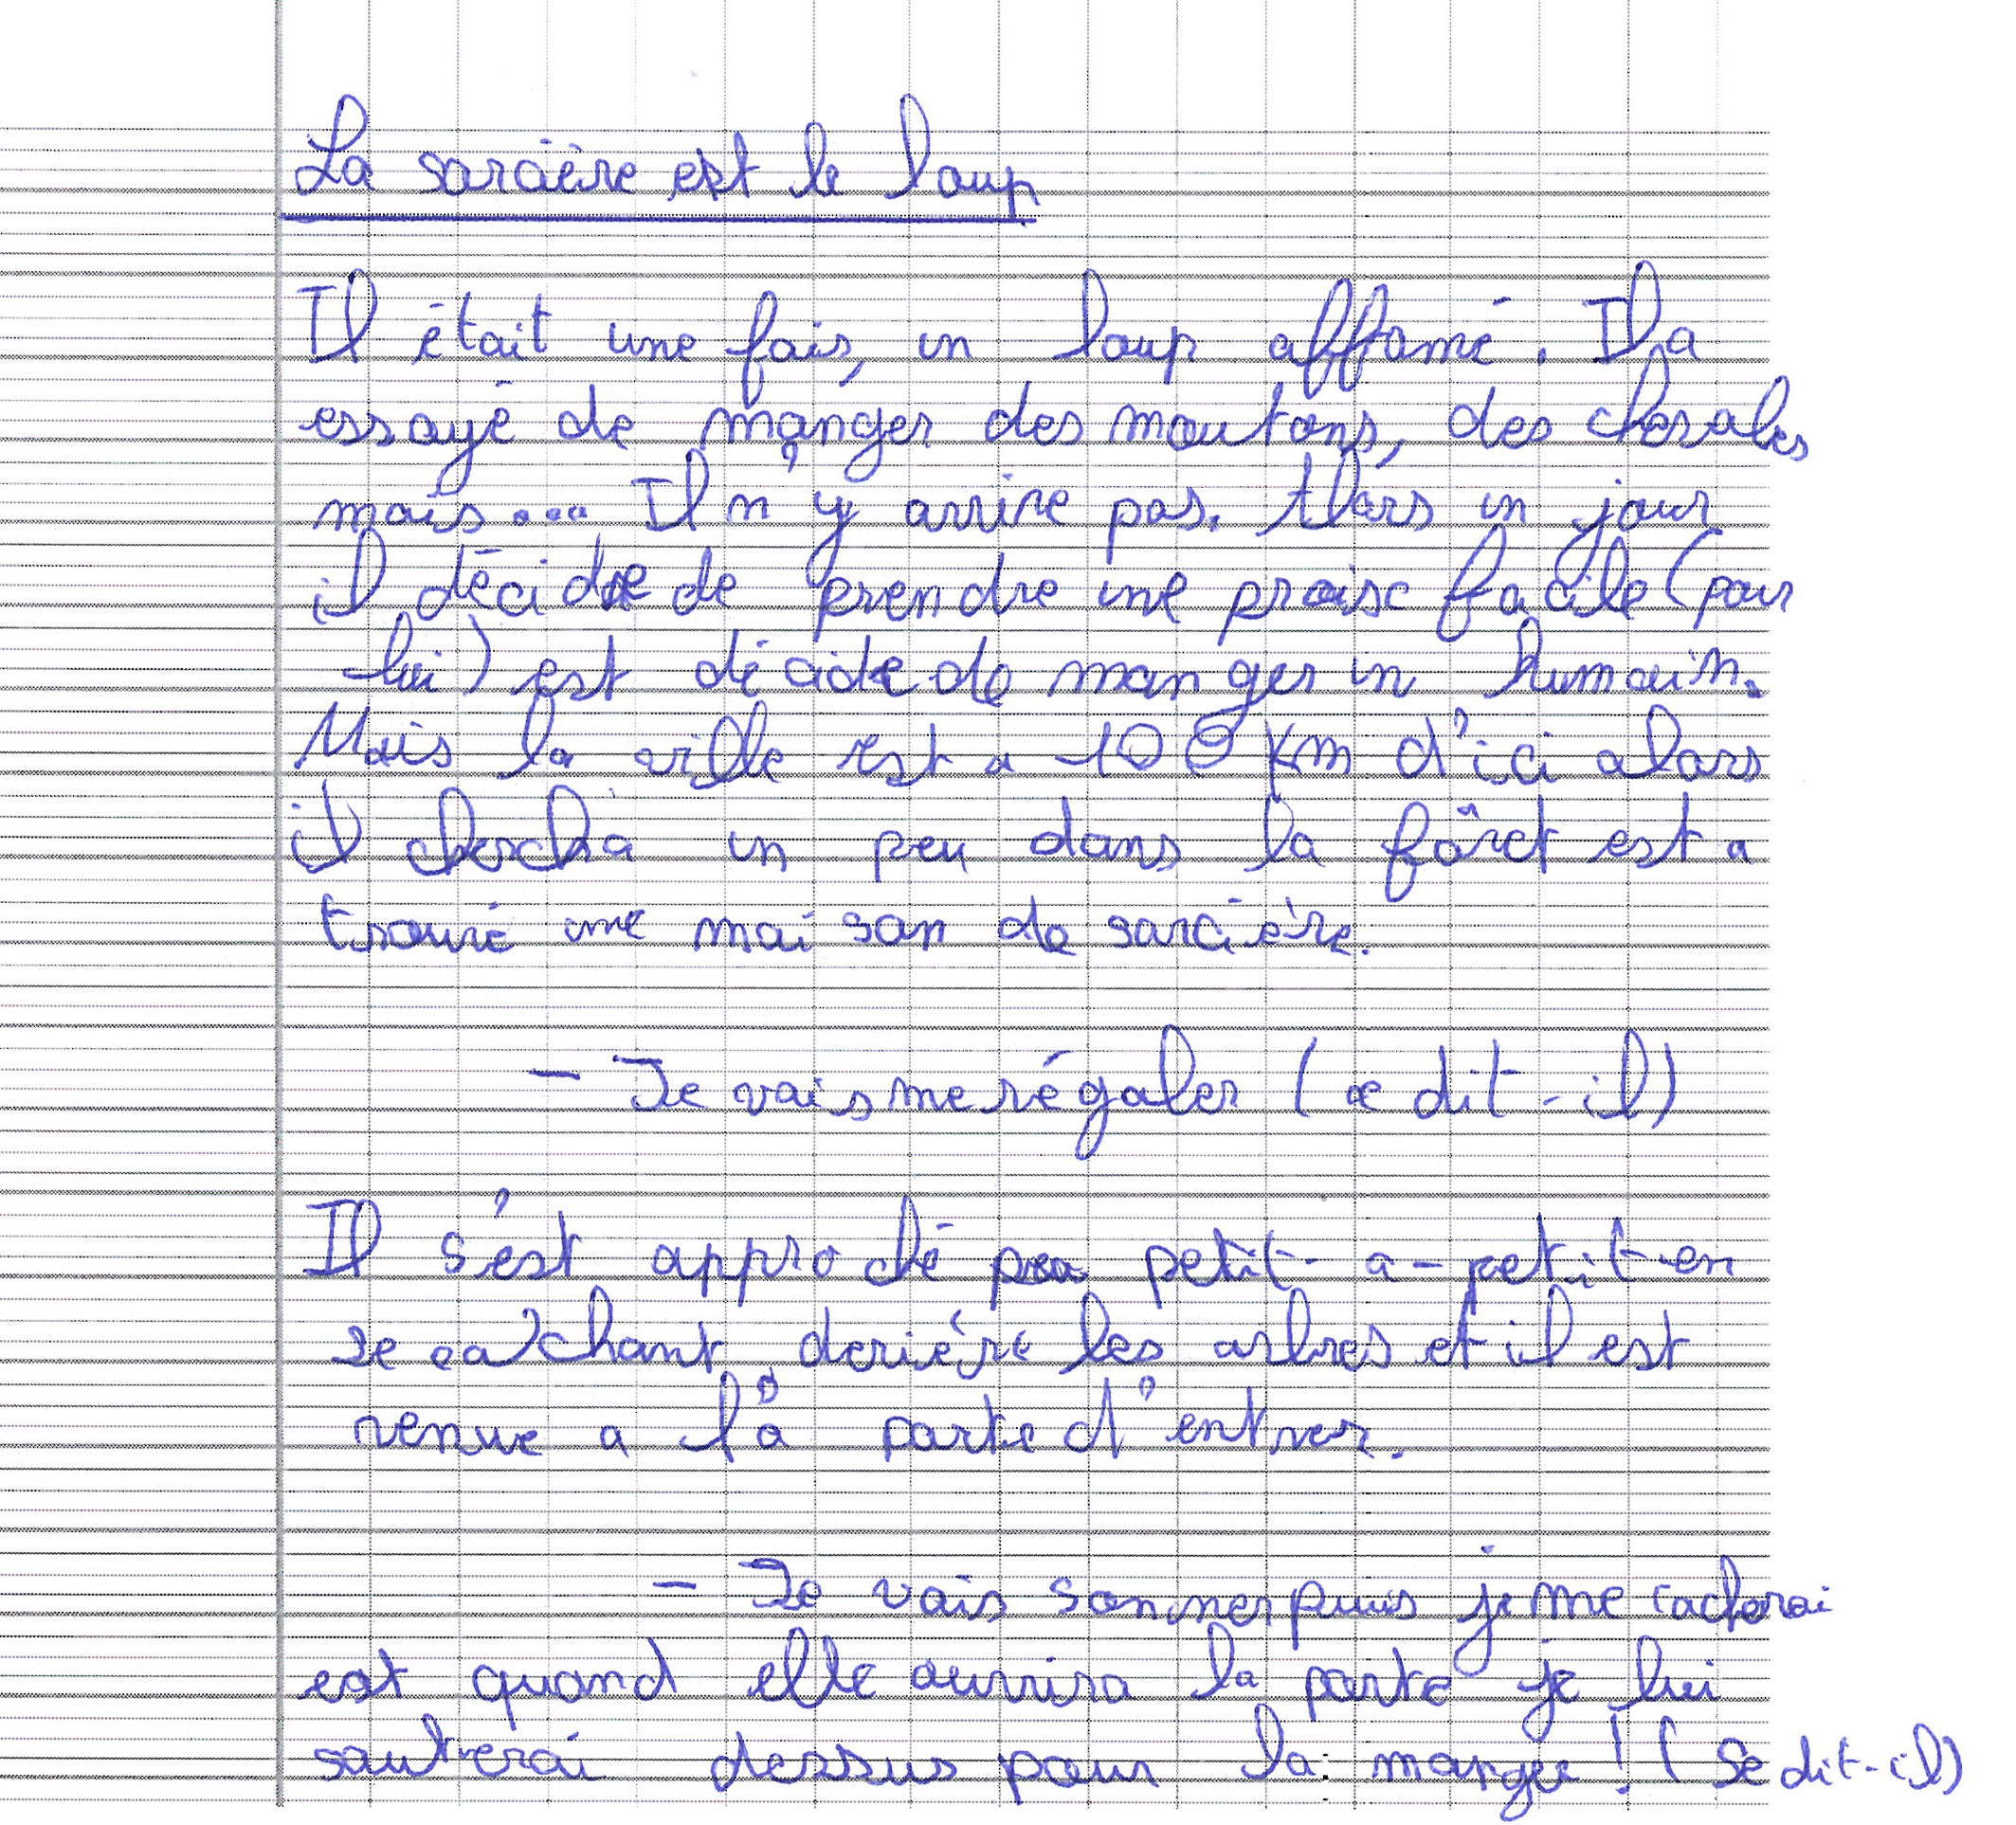 La sorcière est le loup
Il était une fois, un loup affamé. Il a
essayé de manger des moutons, des chevales
mais... Il n'y arrive pas. Alors un jour
il décide de prendre une proise facile (pour
lui) est décide de manger un humain.
Mais la ville est a 100 km d'ici alors
il chercha un peu dans la fôret est a
trouvé une maison de sorcière.
- Je vais me régaler (ce dit-il)
Il s'est approché petit-a-petit en
se ca'chant derière les arbres et il est
venue a l'a porte d'entrer.
- Je vais sonner puis je me cacherai
est quand elle ouvrira la porte je lui
sauterai dessus pour la manger ! (Se dit-il)